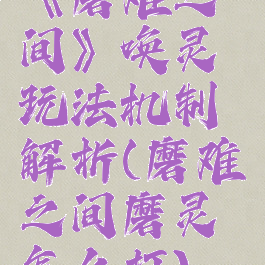 《磨难之
间》唤灵
玩法机制
解析(磨难
之间磨灵
怎么打)